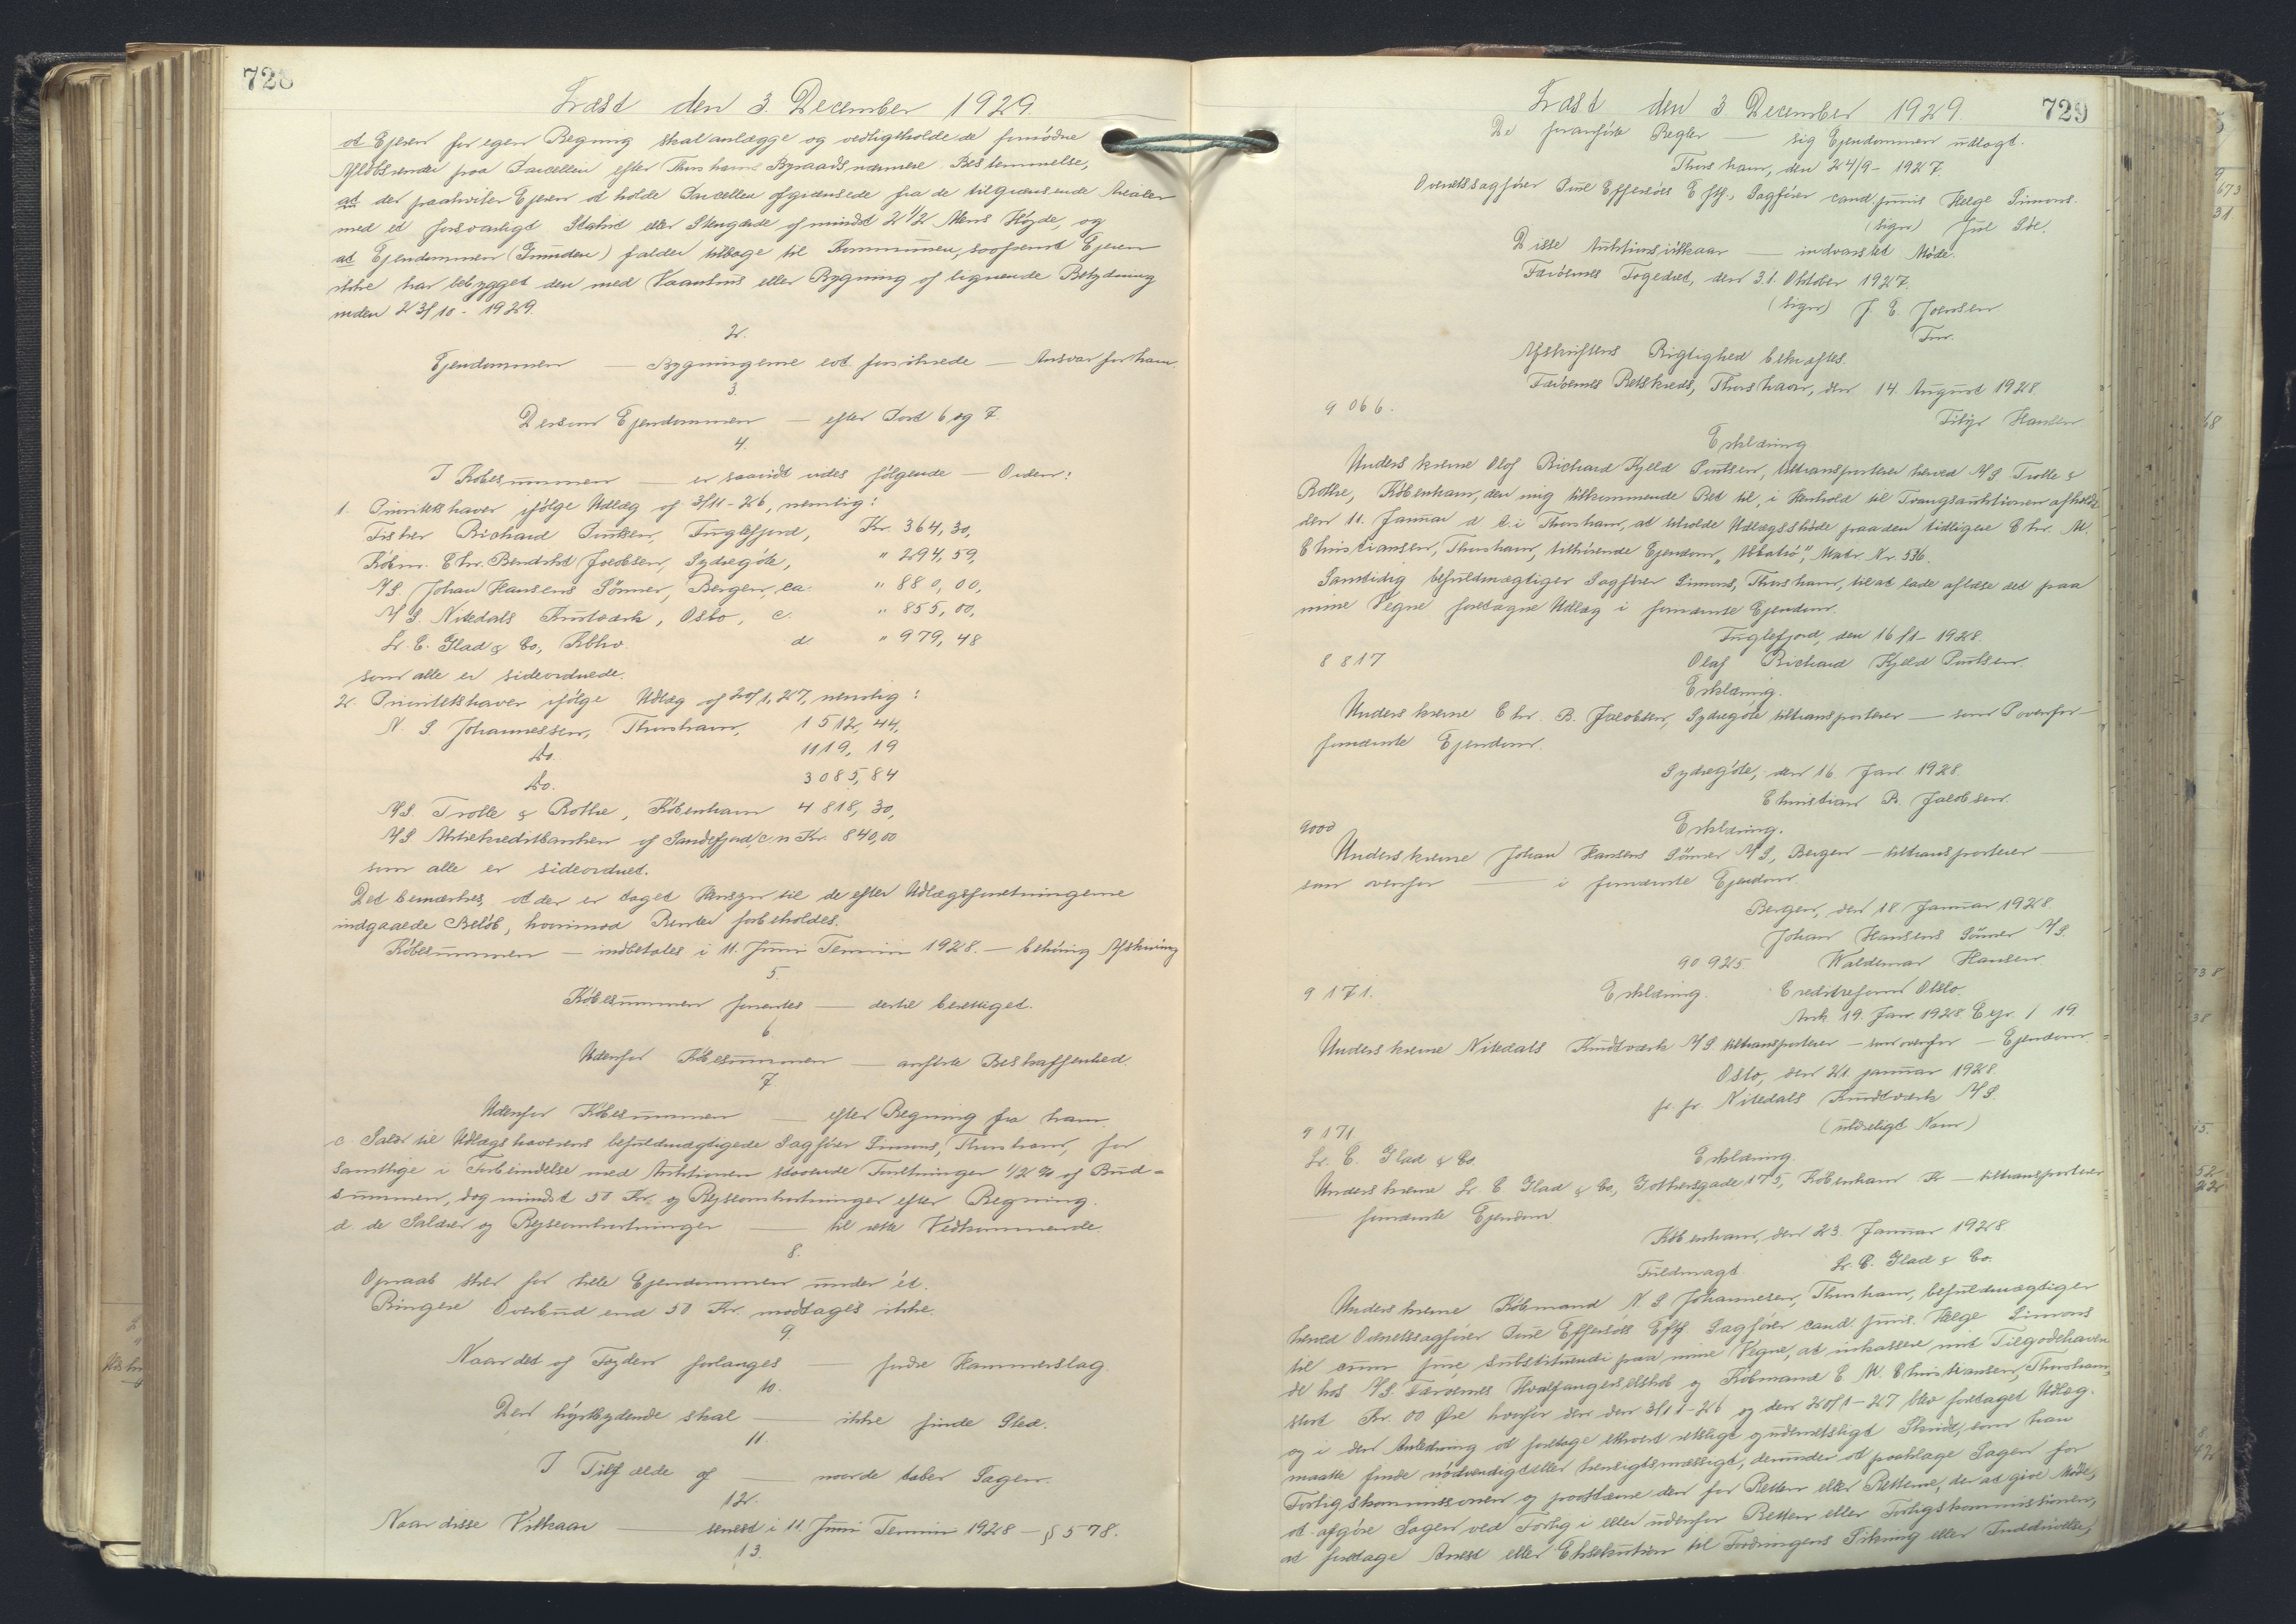 728
Læst den 3. December 1929.
at Ejeren for egen Regning skal anlægge og vedligeholde de fornødne
Afløbsrender paa Parcellen efter Thorshavns Byraads nærmere Bestemmelse,
at der paahviler Ejeren at holde Parcellen afgrænsede fra de tilgrænsende Arealer
med et forsvarligt Stakit eller Stengærde af mindst 2 1/2 Alens Højde, og
at Ejendommen (Grunden) falder tilbage til Kommunen, saafremt Ejeren
ikke har bebygget den med Vaanhus eller Bygning af lignende Betydning
inden 23/10 - 1929.
2.
Ejendommen — Bygningerne evt. forsikrede — Ansvar for ham
3.
Dersom Ejendommen — efter Post 6 og 7.
4.
I Købesummen — er saavidt vides følgende — Orden:
1. Prioritetshaver ifølge Udlæg af 3/11-26, nemlig:
Fisker Richard Poulsen, Fuglefjord, Kr. 364,30,
Købm. Chr. Bendrik Jacobsen, Sydregøte, " 294,59,
A/S. Johan Hansens Sønner, Bergen, ca. " 880,00,
A/S. Nitedals Krutværk, Oslo, c. " 855,00,
Fr. C. Glad & Co, Kbhvn. d " 979,48
som alle er sideordnede.
2. Prioritetshaver ifølge Udlæg af 20/1, 27, nemlig:
N. S. Johannessen, Thorshavn, 1512,44,
Do. 1119,19
Do. 3085,84
A/S. Trolle & Rothe, København 4818,30,
A/S. Aktiekreditbanken af Sandefjord, c n Kr. 840,00
som alle er sideordnet.
Det bemærkes, at der er taget Hensyn til de efter Udlægsforretningerne
indgaaede Beløb, hvorimod Renter forbeholdes.
Købesummen — indbetales i 11. Juni Termin 1928. — behørig Afskrivning
5.
Købesummen forrentes — dertil berettiget.
6.
Udenfor Købesummen — anførte Beskaffenhed.
7
Udenfor Købesummen — efter Regning fra ham
c. Salær til Udlægshaverens befuldmægtigede Sagfører Simons, Thorshavn, for
samtlige i Forbindelse med Auktionen staaende Forretninger 1/2 % af Bud-
summen, dog mindst 50 Kr. og Rejseomkostninger efter Regning.
d. de Salærer og Rejseomkostninger — til rette Vedkommende.
8.
Opraab sker for hele Ejendommen under ét.
Ringere Overbud end 50 Kr. modtages ikke.
9.
Naar det af Fogden forlanges — fordre Hammerslag.
10.
Den højstbydende skal — ikke finde Sted.
11.
I Tilfælde af — maatte taber Sagen.
12.
Naar disse Vilkaar — senest i 11. Juni Termin 1928 — § 578.
13.
729
Læst den 3. December 1929.
De foranførte Regler — sig Ejendommen udlagt.
Thorshavn, den 24/9 - 1927.
Overretssagfører Poul Effersøes Eftf., Sagfører cand. juris Helge Simons.
(sign)
Disse Auktionsvilkaar — indvarslet Møde.
Færøernes Fogedret, den 31. Oktober 1927.
(sign) J. E. Joensen
Fm.
Afskriftens Rigtighed bekræftes.
Færøernes Retskreds, Thorshavn, den 14. August 1928.
Hansen
9066.
Erklæring
Underskrevne Olof Richard Kjeld Poulsen, tiltransporterer herved A/S. Trolle &
Rothe, København, den mig tilkommende Ret til, i Henhold til Tvangsauktionen afholdt
den 11. Januar d A i Thorshavn, at udholde Udlægsskøde paa den tidligere Chr. M.
Christiansen, Thorshavn, tilhørende Ejendom Matr. Nr. 536.
Samtidig befuldmægtiger Sagfører Simons, Thorshavn, til at lade aflæse det paa
mine Vegne foretagne Udlæg i fornævnte Ejendom.
Fuglefjord, den 16/1 - 1928.
8817
Olaf Richard Kjeld Poulsen.
Erklæring.
Underskrevne Chr. B. Jacobsen, Sydregøte tiltransporterer — som ovenfor —
fornævnte Ejendom.
Sydregøte, den 16. Jan. 1928.
Christian B. Jacobsen.
9000
Erklæring.
Underskrevne Johan Hansens Sønner A/S, Bergen — tiltransporterer —
som ovenfor — i fornævnte Ejendom.
Bergen, den 18. Januar 1928.
Johan Hansens Sønner A/S.
90 925. Waldemar Hansen.
9171. Erklæring. Creditreform Oslo.
Ank 19. Jan 1928. Exp. / 19
Underskrevne Nitedals Krudtværk A/S tiltransporterer — som ovenfor — Ejendom.
Oslo, den 21. januar 1928.
pr. pr. Nitedals Krudtværk A/S.
(utydeligt Navn)
9171
Fr. C. Glad & Co. Erklæring.
Underskrevne Fr. C. Glad & Co, Gothersgade 175, København K — tiltransporterer
— fornævnte Ejendom
København, den 23. Januar 1928.
Fuldmagt. Fr. C. Glad & Co.
Underskrevne Købmand N. S. Johannesen, Thorshavn, befuldmægtiger
herved Overretssagfører Poul Effersøes Eftf. Sagfører cand. juris. Helge Simons
til cum jure substituendi paa mine Vegne, at inkassere mit Tilgodehaven-
de hos A/S. Færøernes Hvalfangerselskab og Købmand C. M. Christiansen, Thorshavn,
stort Kr. 00 Øre hvorfor der den 3/11-26 og den 20/1-27 blev foretaget Udlæg.
og i den Anledning at foretage ethvert retsligt og udenretsligt Skridt, som han
maatte finde nødvendigt eller hensigtsmæssigt, derunder at paaklage Sagen for
Forligskommissionen og paastævne den for Retten eller Retterne, der at give Møde,
at afgøre Sagen ved Forlig i eller udenfor Retten eller Forligskommissionen,
at foretage Arrest eller Eksekution til Fordringens Sikring eller Inddrivelse,